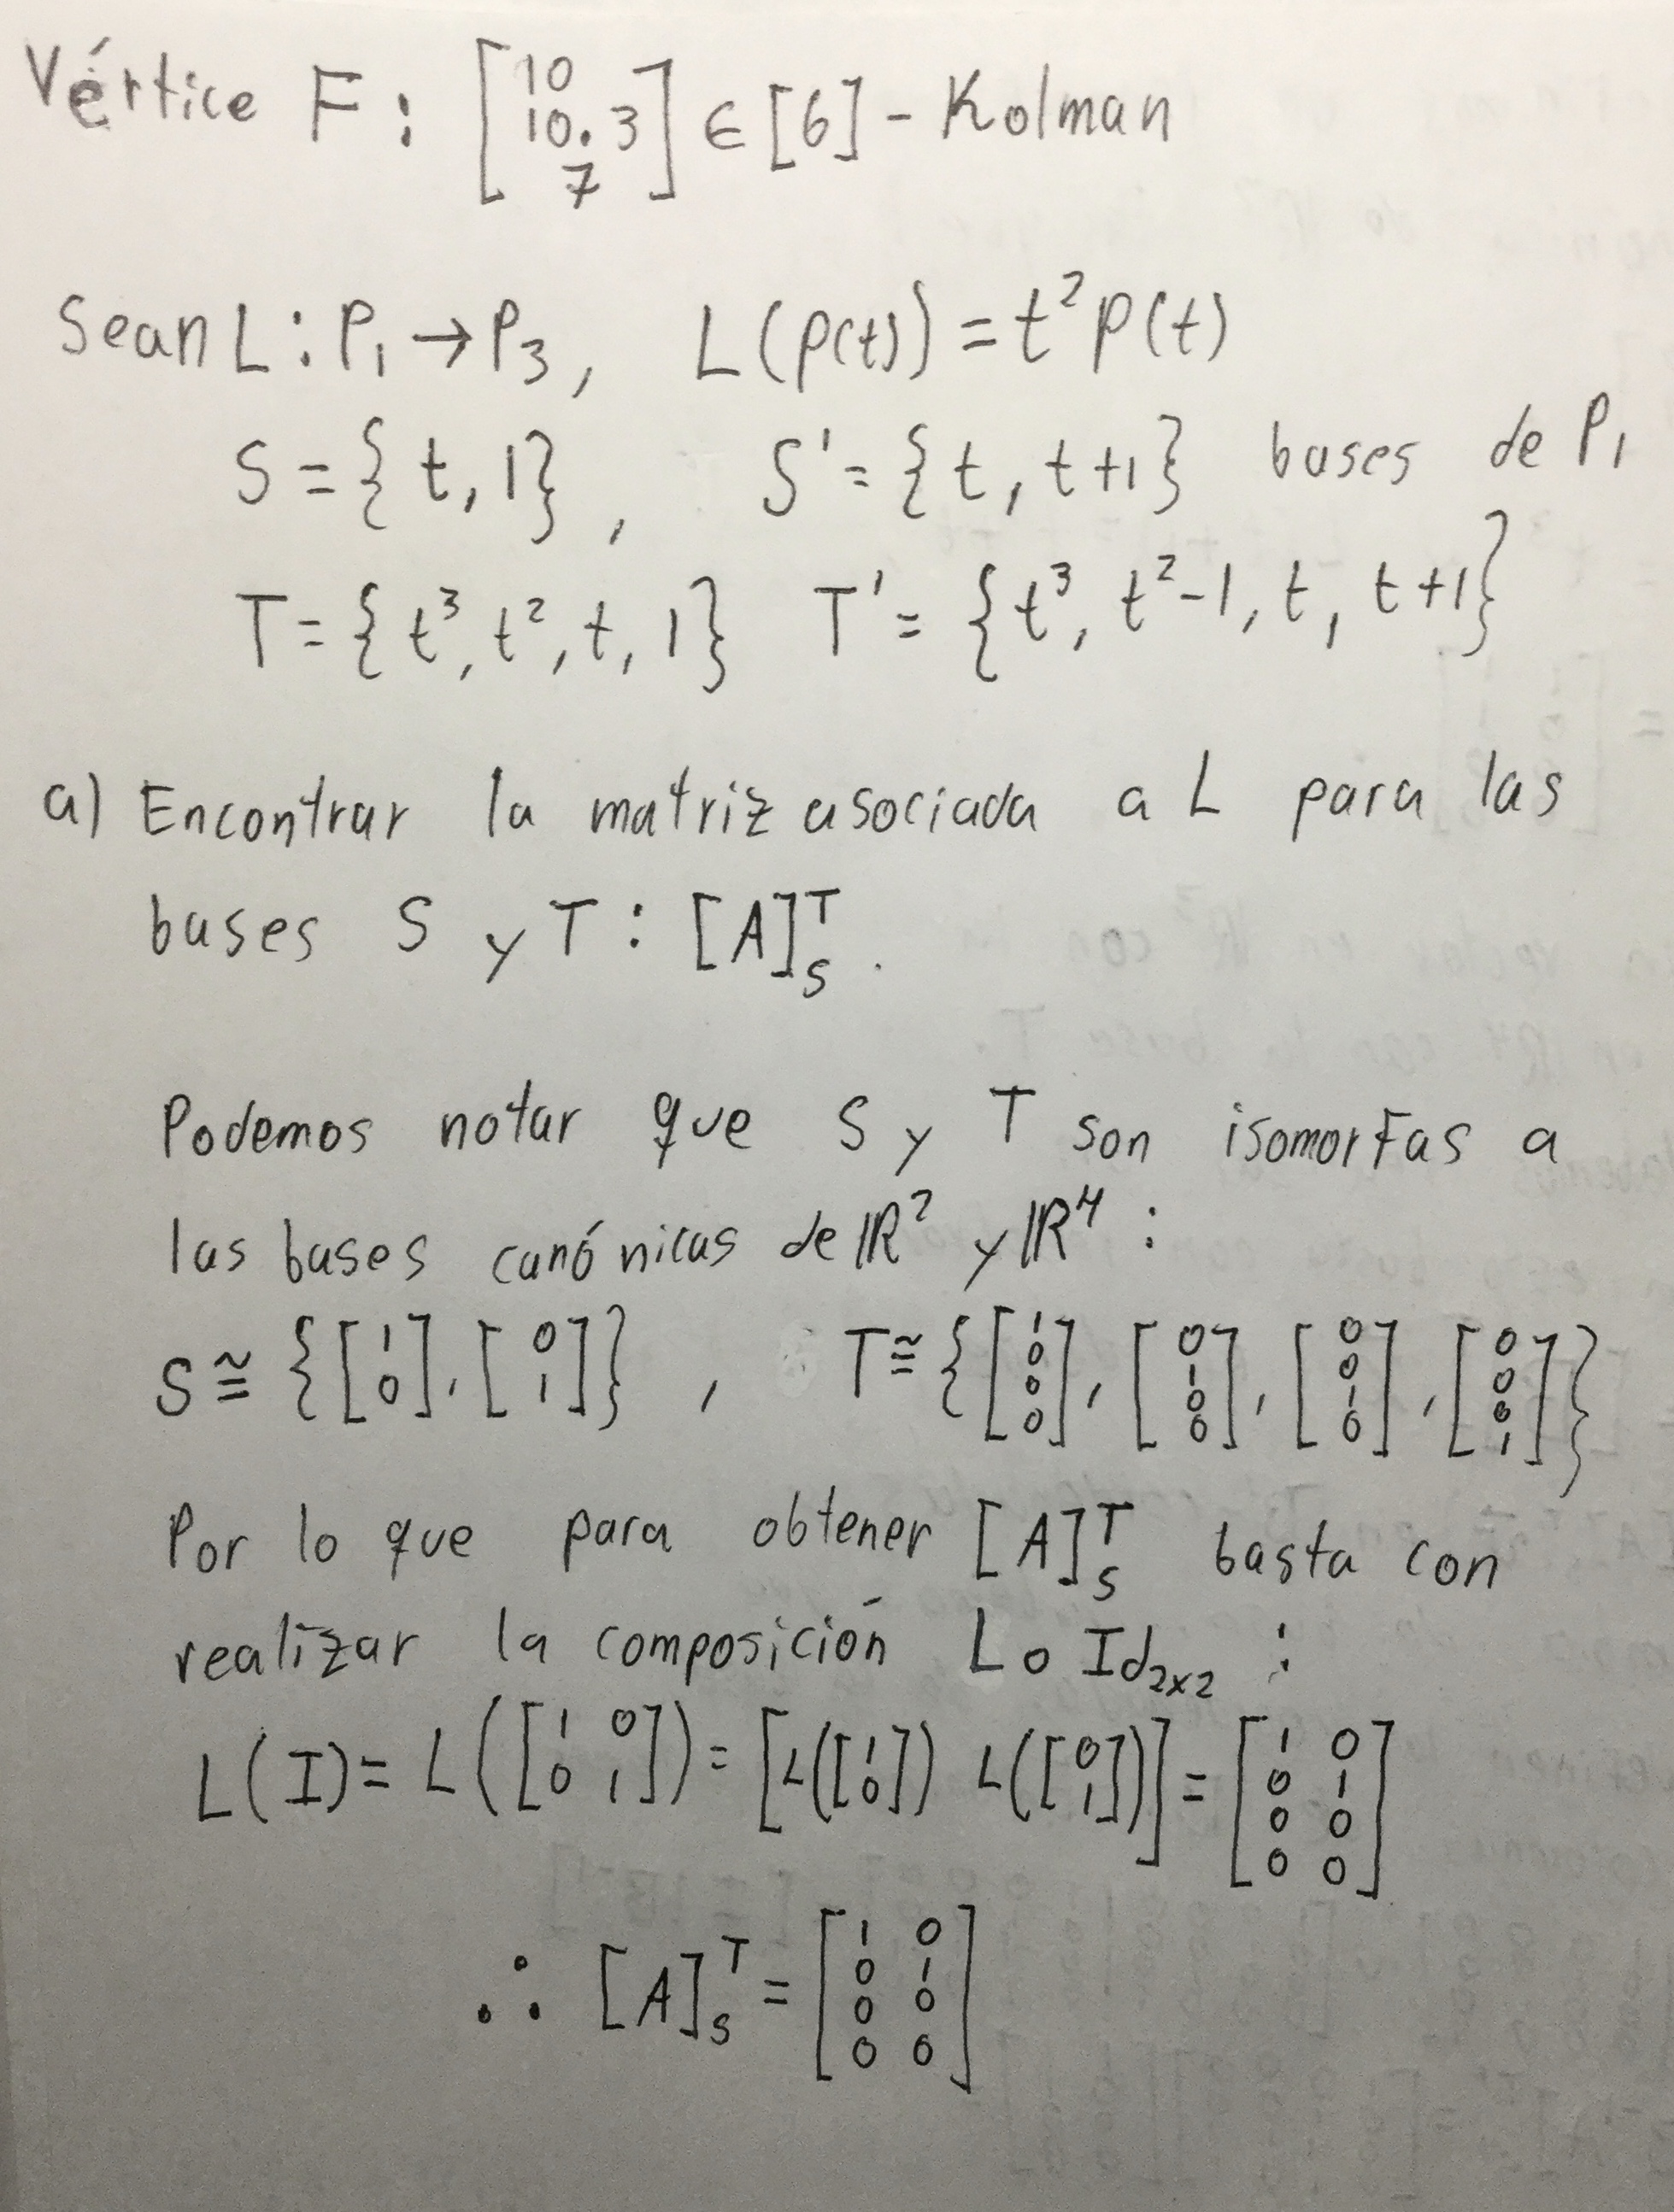 Vértice F: [10 10.3 7] ∈ [6] - Kolman
Sean L: P₁ → P₃, L(p(t)) = t² p(t)
S = {t, 1}, S' = {t, t+1} bases de P₁
T = {t³, t², t, 1} T' = {t³, t²-1, t, t+1}
a) Encontrar la matriz asociada a L para las
bases S y T: [A]_S^T.
Podemos notar que S y T son isomorfas a
las bases canónicas de ℝ² y ℝ⁴:
S ≅ {[1 0], [0 1]}, T ≅ {[1 0 0 0], [0 1 0 0], [0 0 1 0], [0 0 0 1]}
Por lo que para obtener [A]_S^T basta con
realizar la composición L o Id₂ₓ₂ :
L(I) = L([1 0; 0 1]) = [L([1 0]) L([0 1])] = [1 0; 0 1; 0 0; 0 0]
∴ [A]_S^T = [1 0; 0 1; 0 0; 0 0]